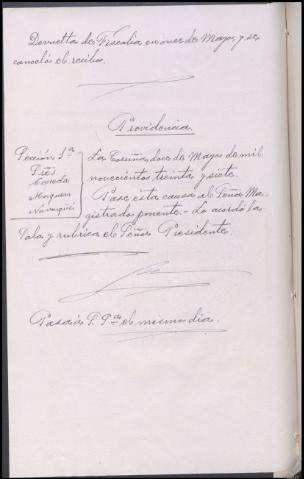 Devuelta de Fiscalía en once de Mayo, y se
canceló el recibo.
Providencia.
Sección 1ª
Sres
Cereda
Mosquera
La Coruña, doce de Mayo de mil
novecientos treinta y siete.
Pase esta causa al Señor Ma-
gistrado ponente.- Lo acordó la
Sala y rubrica el Señor Presidente.
Pasa á S. Sª el mismo dia.